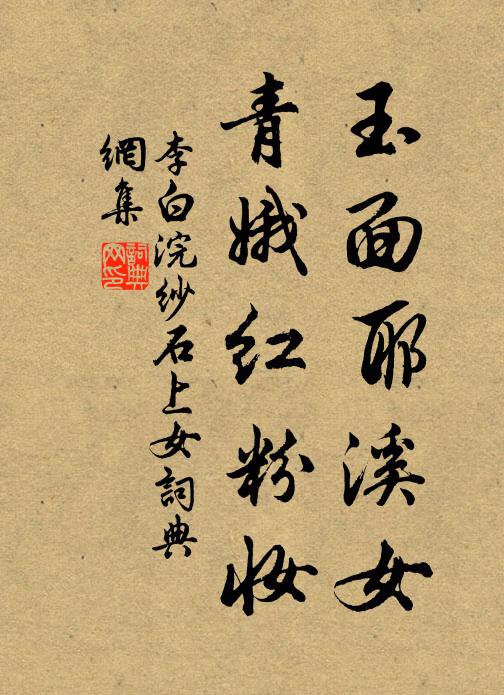 玉面耶溪女
青娥红粉妆
李白浣紗石上女詞典
網集
詞典
网印